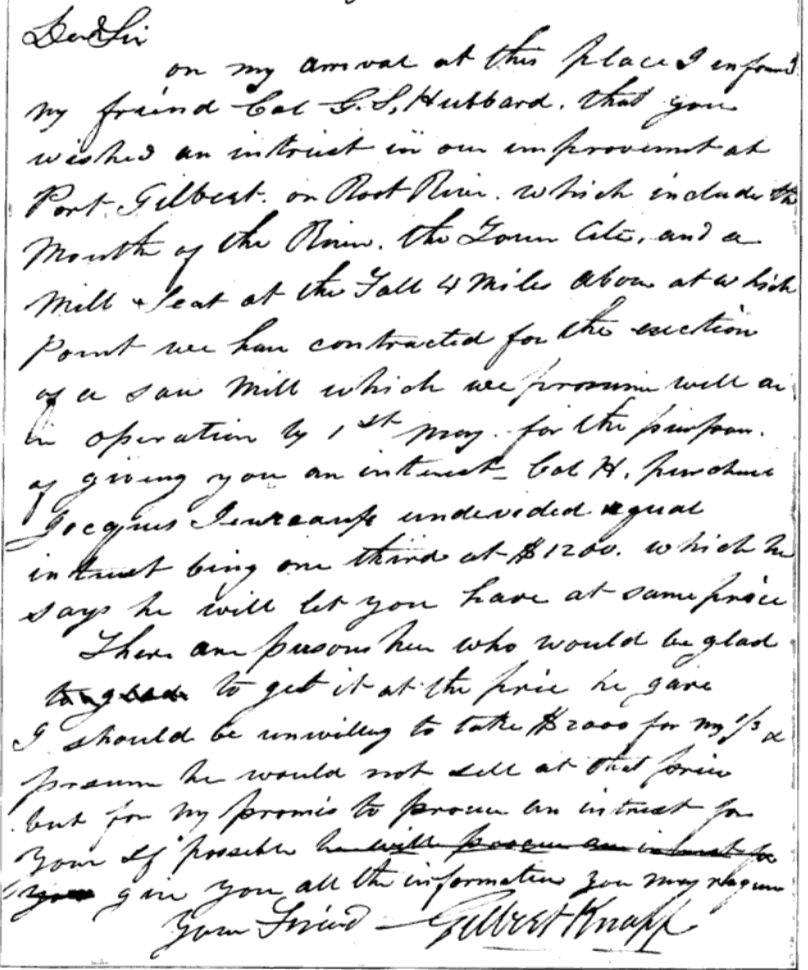 Dear Sir
on my arrival at this place I informd
my friend Col G. S. Hubbard. that you
wished an intrust in our improvement at
Port. Gilbert. on Root River. which include the
Mouth of the River. the Town Cite, and a
Mill Seat at the Fall 4 Miles above at which
Point we have contracted for the erection
of a saw Mill which we presume will
in operation by 1st May. for the purpose.
of giving you an interest - Col H. purchase
Jacques undevided equal
intrust being one third at $1200. which he
says he will let you have at same price
There are persons here who would be glad
to get it at the price he gave
I should be unwilling to take $2000 for my 1/3 &
presume he would not sell at that price
but for my promis to procure an intrust for
your self possible he will procure an intrust for
you give you all the information you may require
Your Friend - Gilbert Knapp